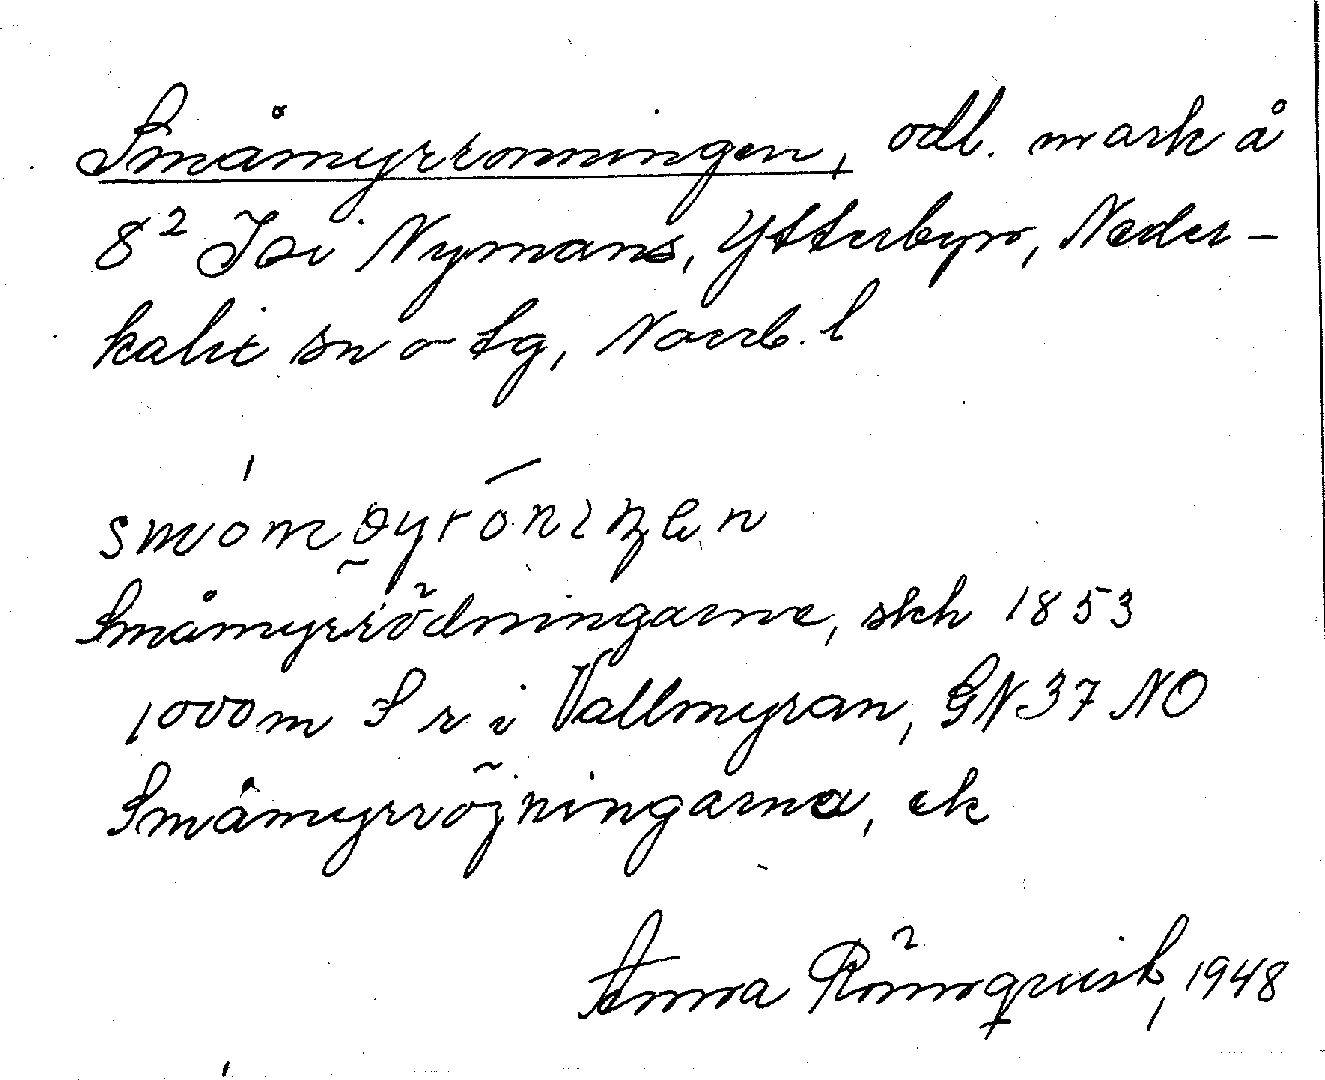 Småmyrronningen, odl. mark å
8² Isi Nymans, Ytterbyn, Neder-
kalix sn o tg, Norrb. l
småmyrröningen
Småmyrrödningarne, skh 1853
1000 m S r i Vallmyran, GN 37 NO
Småmyrröjningarna, ek
Anna Rönnqvist, 1948